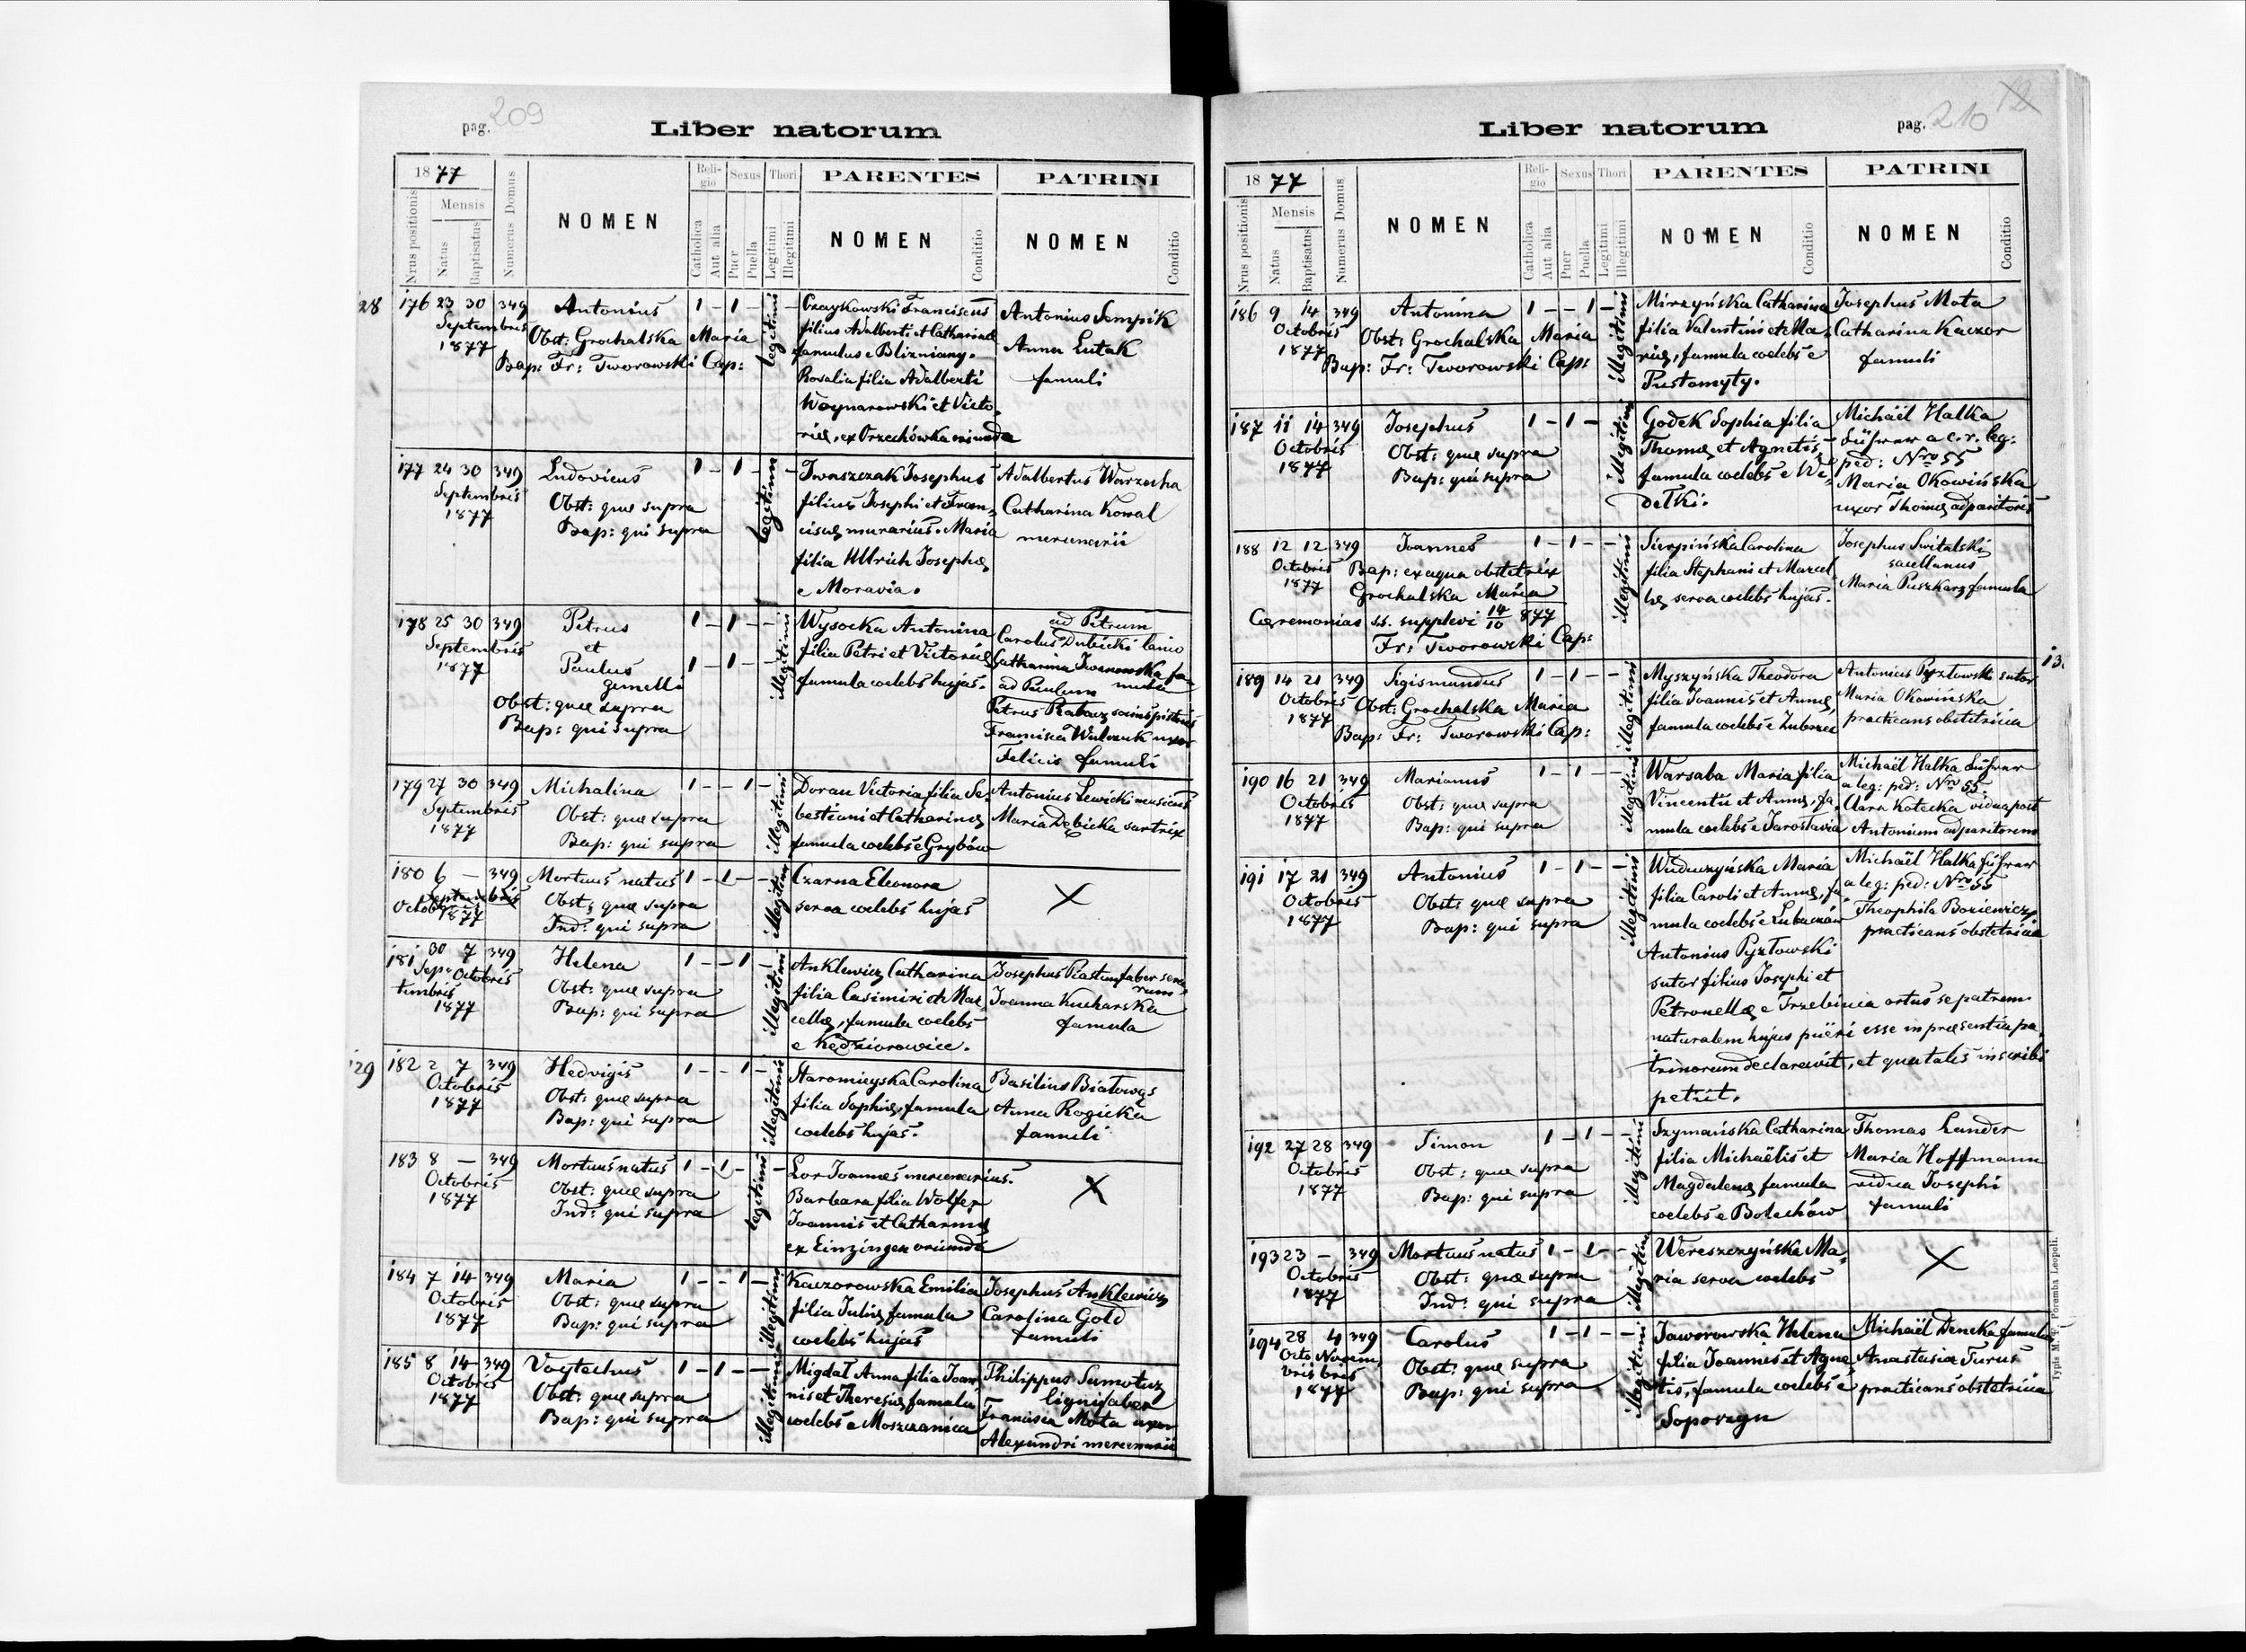 pag. 209
Liber natorum
1877
Nrus positionis
Mensis
Natus
Baptisatus
Numerus Domus
NOMEN
Religio
Catholica
Aut alia
Sexus
Puer
Puella
Thori
Legitimi
Illegitimi
PARENTES
NOMEN
Conditio
PATRINI
NOMEN
Conditio
128
176 23 30 349 Antonius 1 - 1 - legitimi
Septembris
1877
Obst: Grochalska Maria
Bap: Fr: Tworowski Cap:
Czaykowski Franciscus
filius Adalberti et Catharinae
famulus e Blizniany.
Rosalia filia Adalberti
Woynarowski et Victo-
riae, ex Orzechówka oriunda
Antonius Sempik
Anna Lutak
famuli
177 24 30 349 Ludovicus 1 - 1 - legitimi
Septembris
1877
Obst: quae supra
Bap: qui supra
Iwaszczak Josephus
filius Josephi et Fran-
ciscae murarius. Maria
filia Ullrich Josephae
e Moravia.
Adalbertus Warzecha
Catharina Kowal
mercenarii
178 25 30 349 Petrus 1 - 1 - - illegitimi
Septembris
1877
et
Paulus 1 - 1 - -
gemelli
Obst: quae supra
Bap: qui supra
Wysocka Antonina
filia Petri et Victoriae
famula coelebs hujas.
ad Petrum
Carolus Dubicki lanio
Catharina Iwanowska fa-
mula
ad Paulum
Petrus socius
Francisca Walczuk uxor
Felicis famuli
179 27 30 349 Michalina 1 - - 1 - illegitimi
Septembris
1877
Obst: quae supra
Bap: qui supra
Doran Victoria filia Se-
bestiani et Catharinae
famula coelebs e Grybów
Antonius Lewicki musicus
Maria Dębicka sartrix
180 6 - 349 Mortuus natus 1 - 1 - - illegitimi
Septembris
Octobris 1877
Obst: quae supra
Ind: qui supra
Czarna Eleonora
serva coelebs hujas
X
181 30 7 349 Helena 1 - - 1 - illegitimi
Sep- Octobris
tembris
1877
Obst: quae supra
Bap: qui supra
Anklewicz Catharina
filia Casimiri et Mar-
cellae, famula coelebs
e Kędziorowice.
Josephus Piastun faber sera-
rum
Joanna Kucharska
famula
129
182 2 7 349 Hedvigis 1 - - 1 - illegitimi
Octobris
1877
Obst: quae supra
Bap: qui supra
Staromieyska Carolina
filia Sophiae, famula
coelebs hujas.
Basilius Białowąs
Anna Rogicka
famuli
183 8 - 349 Mortuus natus 1 - 1 - legitimi
Octobris
1877
Obst: quae supra
Ind: qui supra
Lor Joannes mercenarius.
Barbara filia Wolfer
Joannis et Catharinae
ex Einzingen oriunda
X
184 7 14 349 Maria 1 - - 1 - illegitimi
Octobris
1877
Obst: quae supra
Bap: qui supra
Kaczorowska Emilia
filia Juliae famula
coelebs hujas
Josephus Anklewicz
Carolina Gold
famuli
185 8 14 349 Voytechus 1 - 1 - - illegitimi
Octobris
1877
Obst: quae supra
Bap: qui supra
Migdał Anna filia Joan-
nis et Theresiae, famula
coelebs e Moszczanica
Philippus Sumotuz
lignifaber
Francisca Mota uxor
Alexandri mercenarii
pag. 210
Liber natorum
1877
Nrus positionis
Mensis
Natus
Baptisatus
Numerus Domus
NOMEN
Religio
Catholica
Aut alia
Sexus
Puer
Puella
Thori
Legitimi
Illegitimi
PARENTES
NOMEN
Conditio
PATRINI
NOMEN
Conditio
186 9 14 349 Antonina 1 - - 1 - illegitimi
Octobris
1877
Obst: Grochalska Maria
Bap: Fr: Tworowski Cap:
Mirzyńska Catharina
filia Valentini et Ma-
riae, famula coelebs e
Pustomyty.
Josephus Mota
Catharina Kaczor
famuli
187 11 14 349 Josephus 1 - 1 - illegitimi
Octobris
1877
Obst: quae supra
Bap: qui supra
Godek Sophia filia
Thomae et Agnetis,
famula coelebs e We-
delki.
Michäel Halka
Führer a c. r. leg:
ped: Nro 55
Maria Okowińska
uxor Thomae adparitoris
188 12 12 349 Joannes 1 - 1 - - illegitimi
Octobris
1877
Bap: ex aqua obstetrix
Grochalska Maria
Caeremonias ss. supplevi 14/10 877
Fr: Tworowski Cap:
Sierpińska Carolina
filia Stephani et Marcel-
lae serva coelebs hujas.
Josephus Switalski
sacellanus
Maria Puszkarz famula
130
189 14 21 349 Sigismundus 1 - 1 - - illegitimi
Octobris
1877
Obst: Grochalska Maria
Bap: Fr: Tworowski Cap:
Myszyńska Theodora
filia Joannis et Annae,
famula coelebs e
Antonius Pyztowski sutor
Maria Okowińska
practicans obstetricia
190 16 21 349 Marianus 1 - 1 - - illegitimi
Octobris
1877
Obst: quae supra
Bap: qui supra
Warsaba Maria filia
Vincentii et Annae, fa-
mula coelebs e Jaroslavia
Michäel Halka Führer
a leg: ped: Nro 55.
Clara Kotecka vidua post
Antonium adparitorem
191 17 21 349 Antonius 1 - 1 - - illegitimi
Octobris
1877
Obst: quae supra
Bap: qui supra
Wuduczyńska Maria
filia Caroli et Annae, fa-
mula coelebs e Lubaczów
Antonius Pyztowski
sutor filius Josephi et
Petronellae e Trzebinia ortus se patrem
naturalem hujus puëri esse in praesentia pa-
trinorum declaravit, et qua talis inscribi
petiit.
Michäel Halka führer
a leg: ped: Nro 55
Theophila Bozieniecz
practicans obstetricia
192 27 28 349 Simon 1 - 1 - - illegitimi
Octobris
1877
Obst: quae supra
Bap: qui supra
Szymańska Catharina
filia Michäelis et
Magdalenae famula
coelebs e Bolechów
Thomas Lander
Maria Hoffmann
vidua Josephi
famuli
193 23 - 349 Mortuus natus 1 - 1 - - illegitimi
Octobris
1877
Obst: quae supra
Ind: qui supra
Wereszczyńska Ma-
ria serva coelebs
X
194 28 4 349 Carolus 1 - 1 - - illegitimi
Octo- Novem-
bris bris
1877
Obst: quae supra
Bap: qui supra
Jaworowska Helena
filia Joannis et Agne-
tis, famula coelebs e
Soposzyn
Michäel Deneka famulus
Anastasia Turus
practicans obstetricia
Typis M. F. Poremba Leopoli.